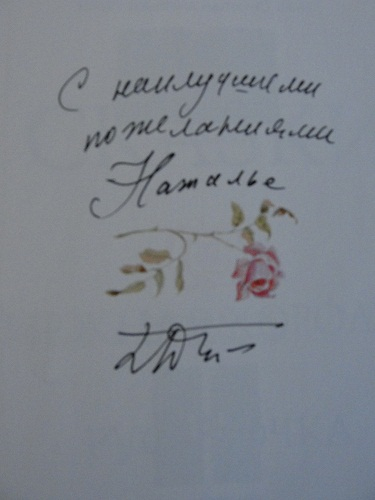 С наилучшими
пожеланиями
Наталье